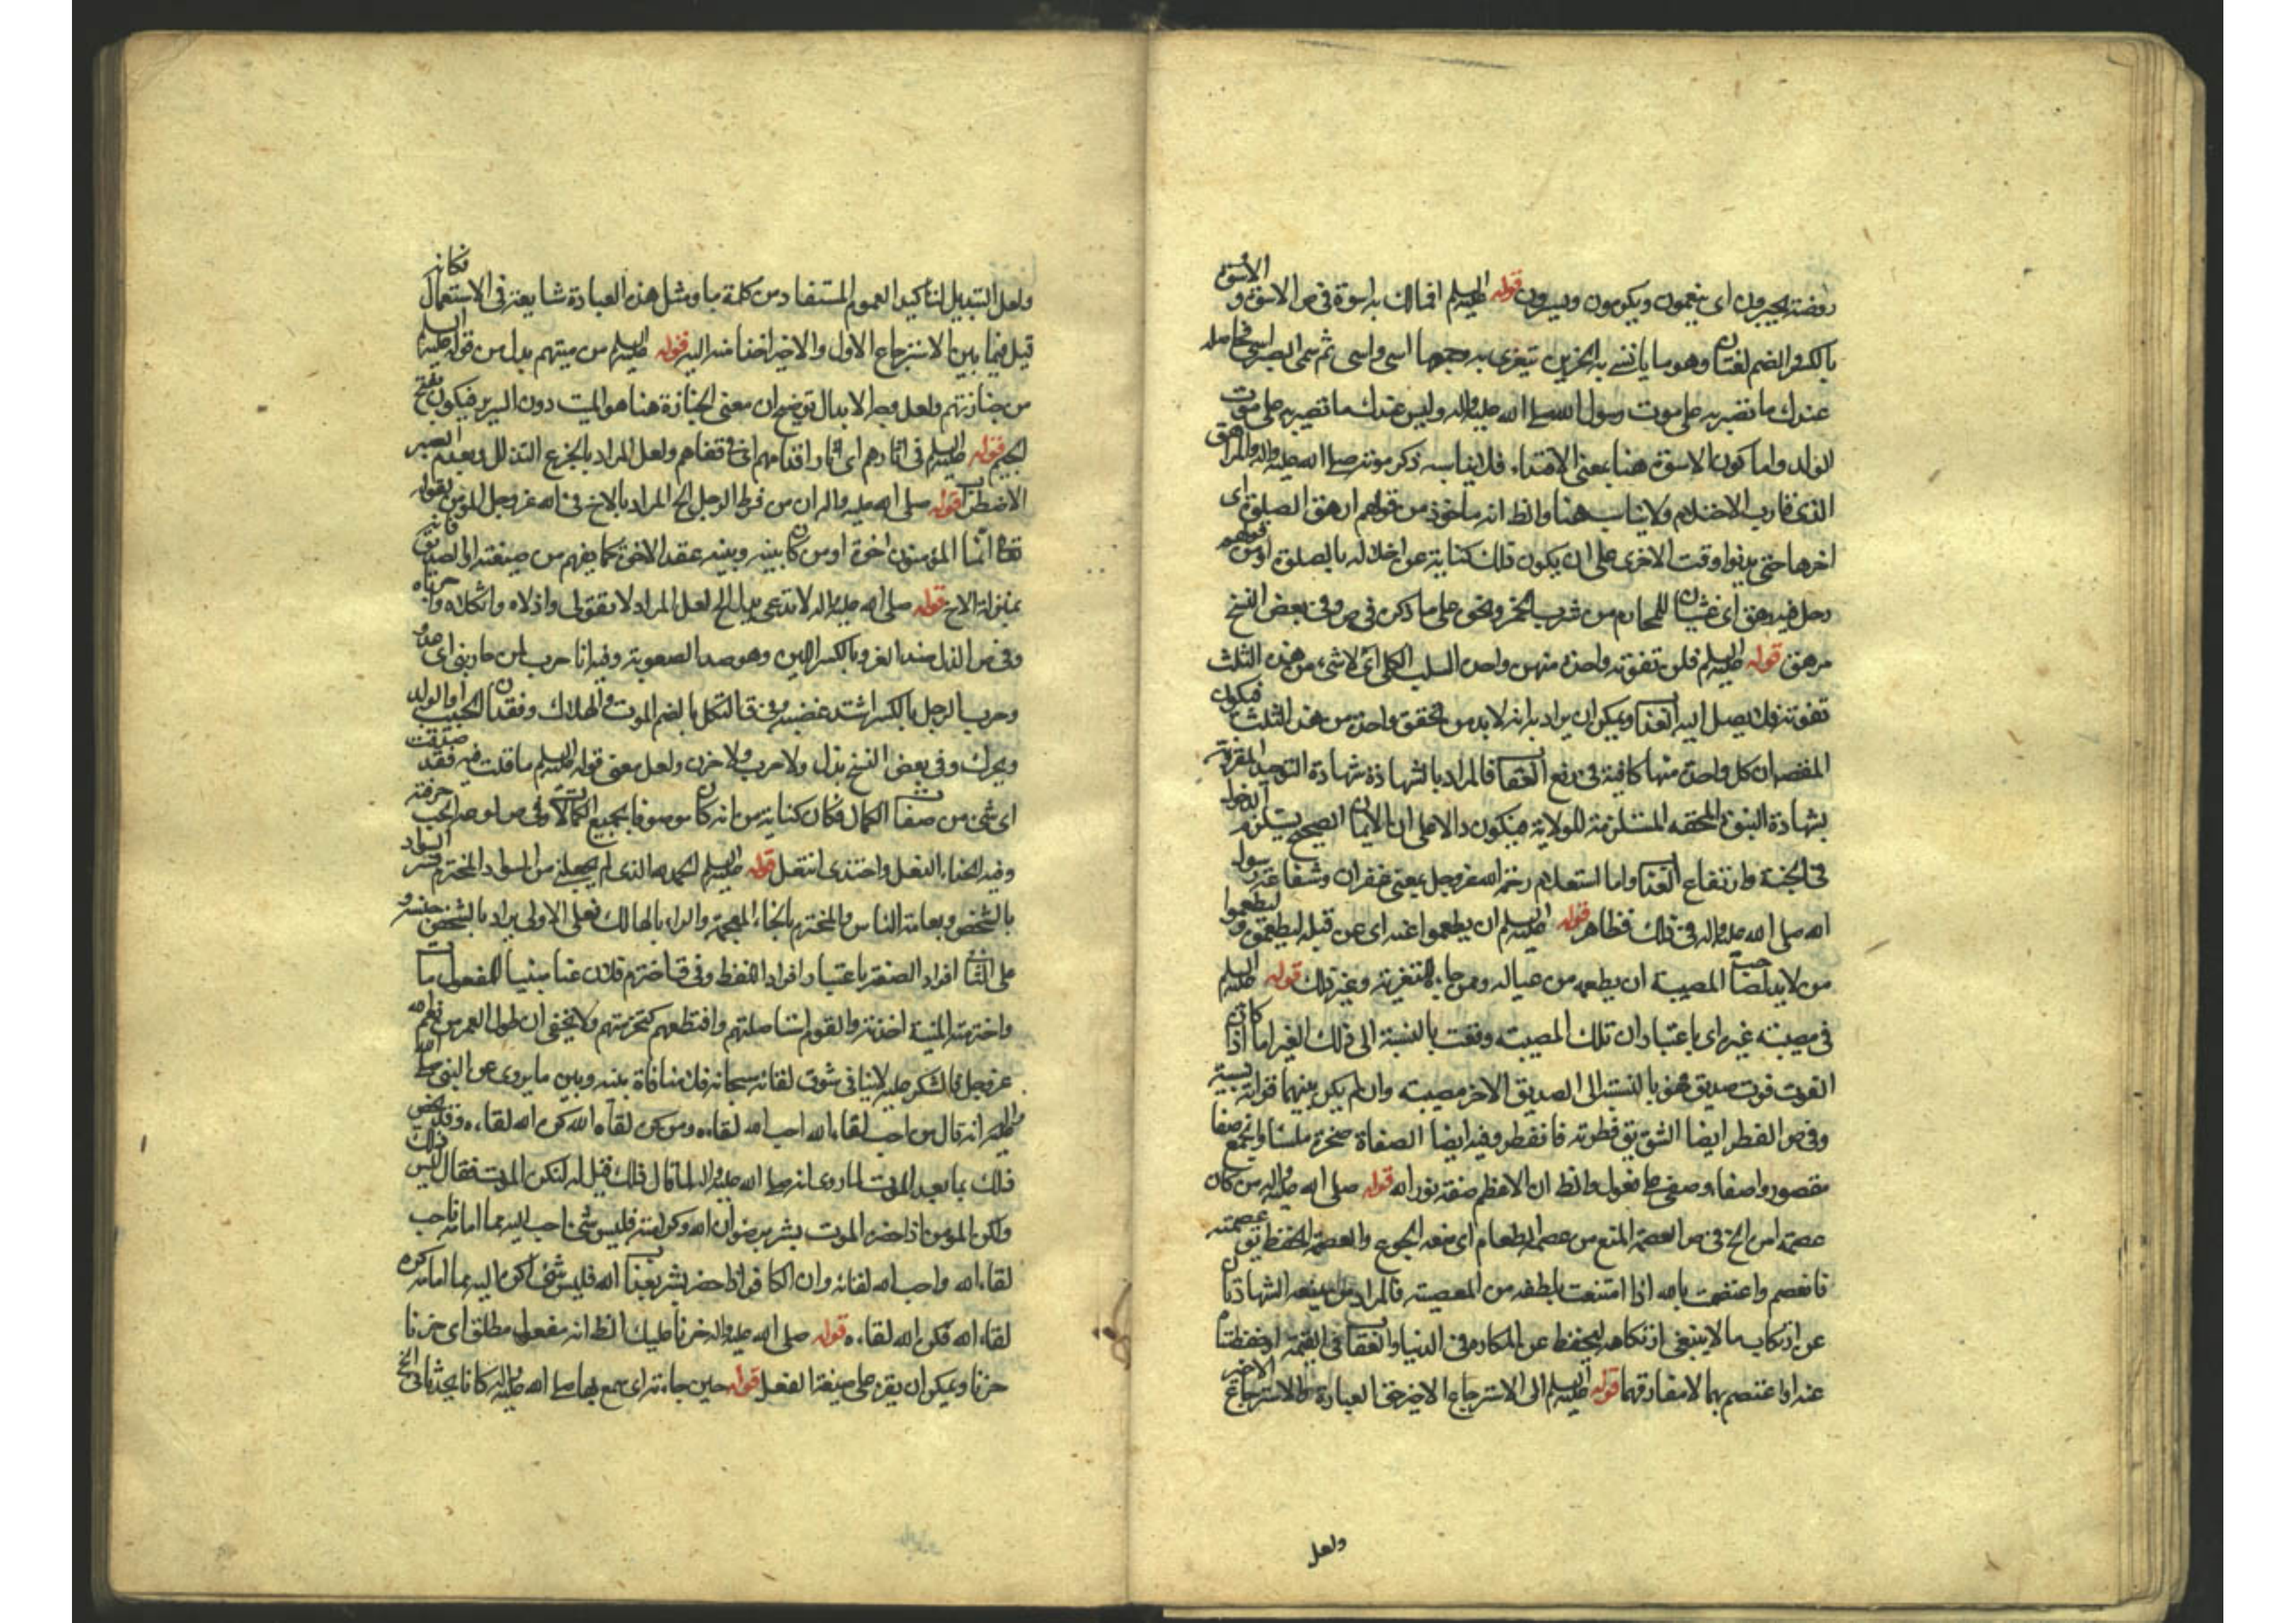 روضة يحبرون اى ينعمون ويكرمون ويسرون قوله عليه السلم افمالك به اسوة فى ص الاسوة و الاسوة
بالكسر والضم لغتان وهو ما يأتسى به الحزين يتعزى به وجمعها اسى واسى ثم سمى الصبر اسى فحاصله
عندك ما تصبر به على موت رسول الله صلى الله عليه واله وليس عندك ما تصبر به على موت
الولد واما كون الاسوة هنا بمعنى الاقتداء فلا يناسبه ذكر موته صلى الله عليه واله والمراهق
الذى قارب الاحتلام ولا يناسب هنا والظ انه ماخوذ من قولهم ارهق الصلوة اى
اخرها حتى يدنوا وقت الاخرى على ان يكون ذلك كناية عن اخلاله بالصلوة او من قولهم
رجل فيه رهق اى غشيان للمحارم من شرب الخمر ونحوه على ما ذكره فى ص وفى بعض النسخ
مرهق قوله عليه السلم فلن تفوته واحدة منهن واحد السلب الكلى اى لا شىء من هذه الثلث
تفوته فلا يصل اليه العذاب ويمكن ان يراد به انه لا بد من تحقق واحدة من هذه الثلث فيكون
المقصود ان كل واحدة منها كافية فى رفع العقاب فالمراد بالشهادة شهادة التوحيد المقرونة
بشهادة النبوة المحقه المستلزمة للولاية فيكون دالا على ان الايمان الصحيح يستلزم الدخول
فى الجنة وارتفاع العذاب واما استعلام رحمة الله عز وجل بمعنى غفران وشفاعة رسول
الله صلى الله عليه واله فى ذلك فظاهر قوله عليه السلم ان يطعموا عنه اى عن قبله ليطعموه و ليطعموا
من لا بد لصاحب المصيبة ان يطعمه من عياله ومن جاء للتعزية وغير ذلك قوله عليه السلم
فى مصيبته غيره اى باعتبار ان تلك المصيبة وقعت بالنسبة الى ذلك الغير اما اذا كان
الفوت فوت صديق فهو بالنسبة الى الصديق الاخر مصيبه وان لم يكن بينهما قرابة نسبية
وفى ص الفطر ايضا الشق يق فطرته فانفطر وفيه ايضا الصفاة صخرة ملساء والجمع صفا
مقصور واصفاء وصفى على فعول والظ ان الاعظم صفة نور الله قوله صلى الله عليه واله من كان
عصمة امره الخ فى ص العصمة المنع من عصمه الطعام اى منعه الجوع والعصمة الحفظ يق عصمته
فانعصم واعتصمت بالله اذا امتنعت بلطفه من المعصية فالمراد من يمنعه الشهادتان
عن ارتكاب ما لا ينبغى ارتكابه ليحفظ عن المكاره فى الدنيا والعقاب فى القيمة او حفظتاه
عنه او اعتصم بهما لا مفارقهما قوله عليه السلم الى الاسترجاع الاخير حق العبارة والاسترجاع الاخير
ولعل
ولعل التبديل لتاكيد العموم المستفاد من كلمة ما ومثل هذه العبارة شايعة فى الاستعمال فكانه
قيل فيما بين الاسترجاع الاول والاخير اخذا منه اليه قوله عليه السلم من ميتهم بدل من قوله عليه السلم
من جنازتهم ولعل وجه الابدال توضيح ان معنى الجنازة هنا هو الميت دون السرير فيكون بفتح
الجيم قوله عليه السلم فى اثارهم اى اثار اقدامهم اى فى قفاهم ولعل المراد بالجزع التذلل وبعدم الصبر
الاضطراب قوله صلى الله عليه واله ان من فرط الرجل الخ المراد بالاخ فى الله عز وجل المؤمن لقوله
تعالى انما المؤمنون اخوة او من كان بينه وبينه عقد الاخوة كما يفهم من صيغته او الصديق فانه
بمنزلة الاخ قوله صلى الله عليه واله لا تدعى بذل الخ لعل المراد لا تقولى واذلاه واثكلاه واحرباه
وفى ص الذل ضد العز وبالكسر اللين وهو ضد الصعوبة وفيه انا حرب لمن حاربنى اى عدو
وحرب الرجل بالكسر اشتد غضبه وفى ق الثكل بالضم الموت والهلاك وفقدان الحبيب او الولد
ويحرك وفى بعض النسخ بذل ولا حرب ولا حزن ولعل معنى قوله عليه السلم ما قلت فيه فقد صدقت
اى شىء من صفات الكمال فكان كناية من انه كان موصوفا بجميع الكمالات وفى ص لوصه الحب حرقته
وفيه الحذاء النعل واحتذى انتعل قوله عليه السلم الحمد لله الذى لم يجعلنى من السواد المخترم فسر السواد
بالشخص وبعامة الناس والمخترم بالخاء المعجمة والراء بالهالك فعلى الاولى يراد بالشخص جنسه و
على الثانى افراد الصنف باعتبار افراد اللفظ وفى ق اخترم فلان عنا مبنيا للمفعول مات
واخترمته المنية اخذته والقوم استاصلتهم واقتطعهم كتخرمتهم ولا يخفى ان طول العمر من نعم الله
عز وجل فالشكر عليه لا ينافى شوق لقائه سبحانه فلا منافاة بينه وبين ما يروى عن النبى صلى الله
عليه واله انه قال من احب لقاء الله احب الله لقاءه ومن كره لقاء الله كره الله لقاءه وقد يخص
ذلك بما بعد الموت لما روى انه صلى الله عليه واله لما قال ذلك قيل له لنكره الموت فقال ليس ذلك
ولكن المؤمن اذا حضره الموت بشر برضوان الله وكرامته فليس شىء احب اليه مما امامه فاحب
لقاء الله واحب الله لقائه وان الكافر اذا حضر بشر بعذاب الله فليس شىء اكره اليه مما امامه كره
لقاء الله فكره الله لقاءه قوله صلى الله عليه واله حزنا عليك الظ انه مفعول مطلق اى حزنا
حزنا ويمكن ان يقرء على صيغة الفعل قوله حين جاءته اى سمع بها صلى الله عليه واله كانا يحدثانى الخ